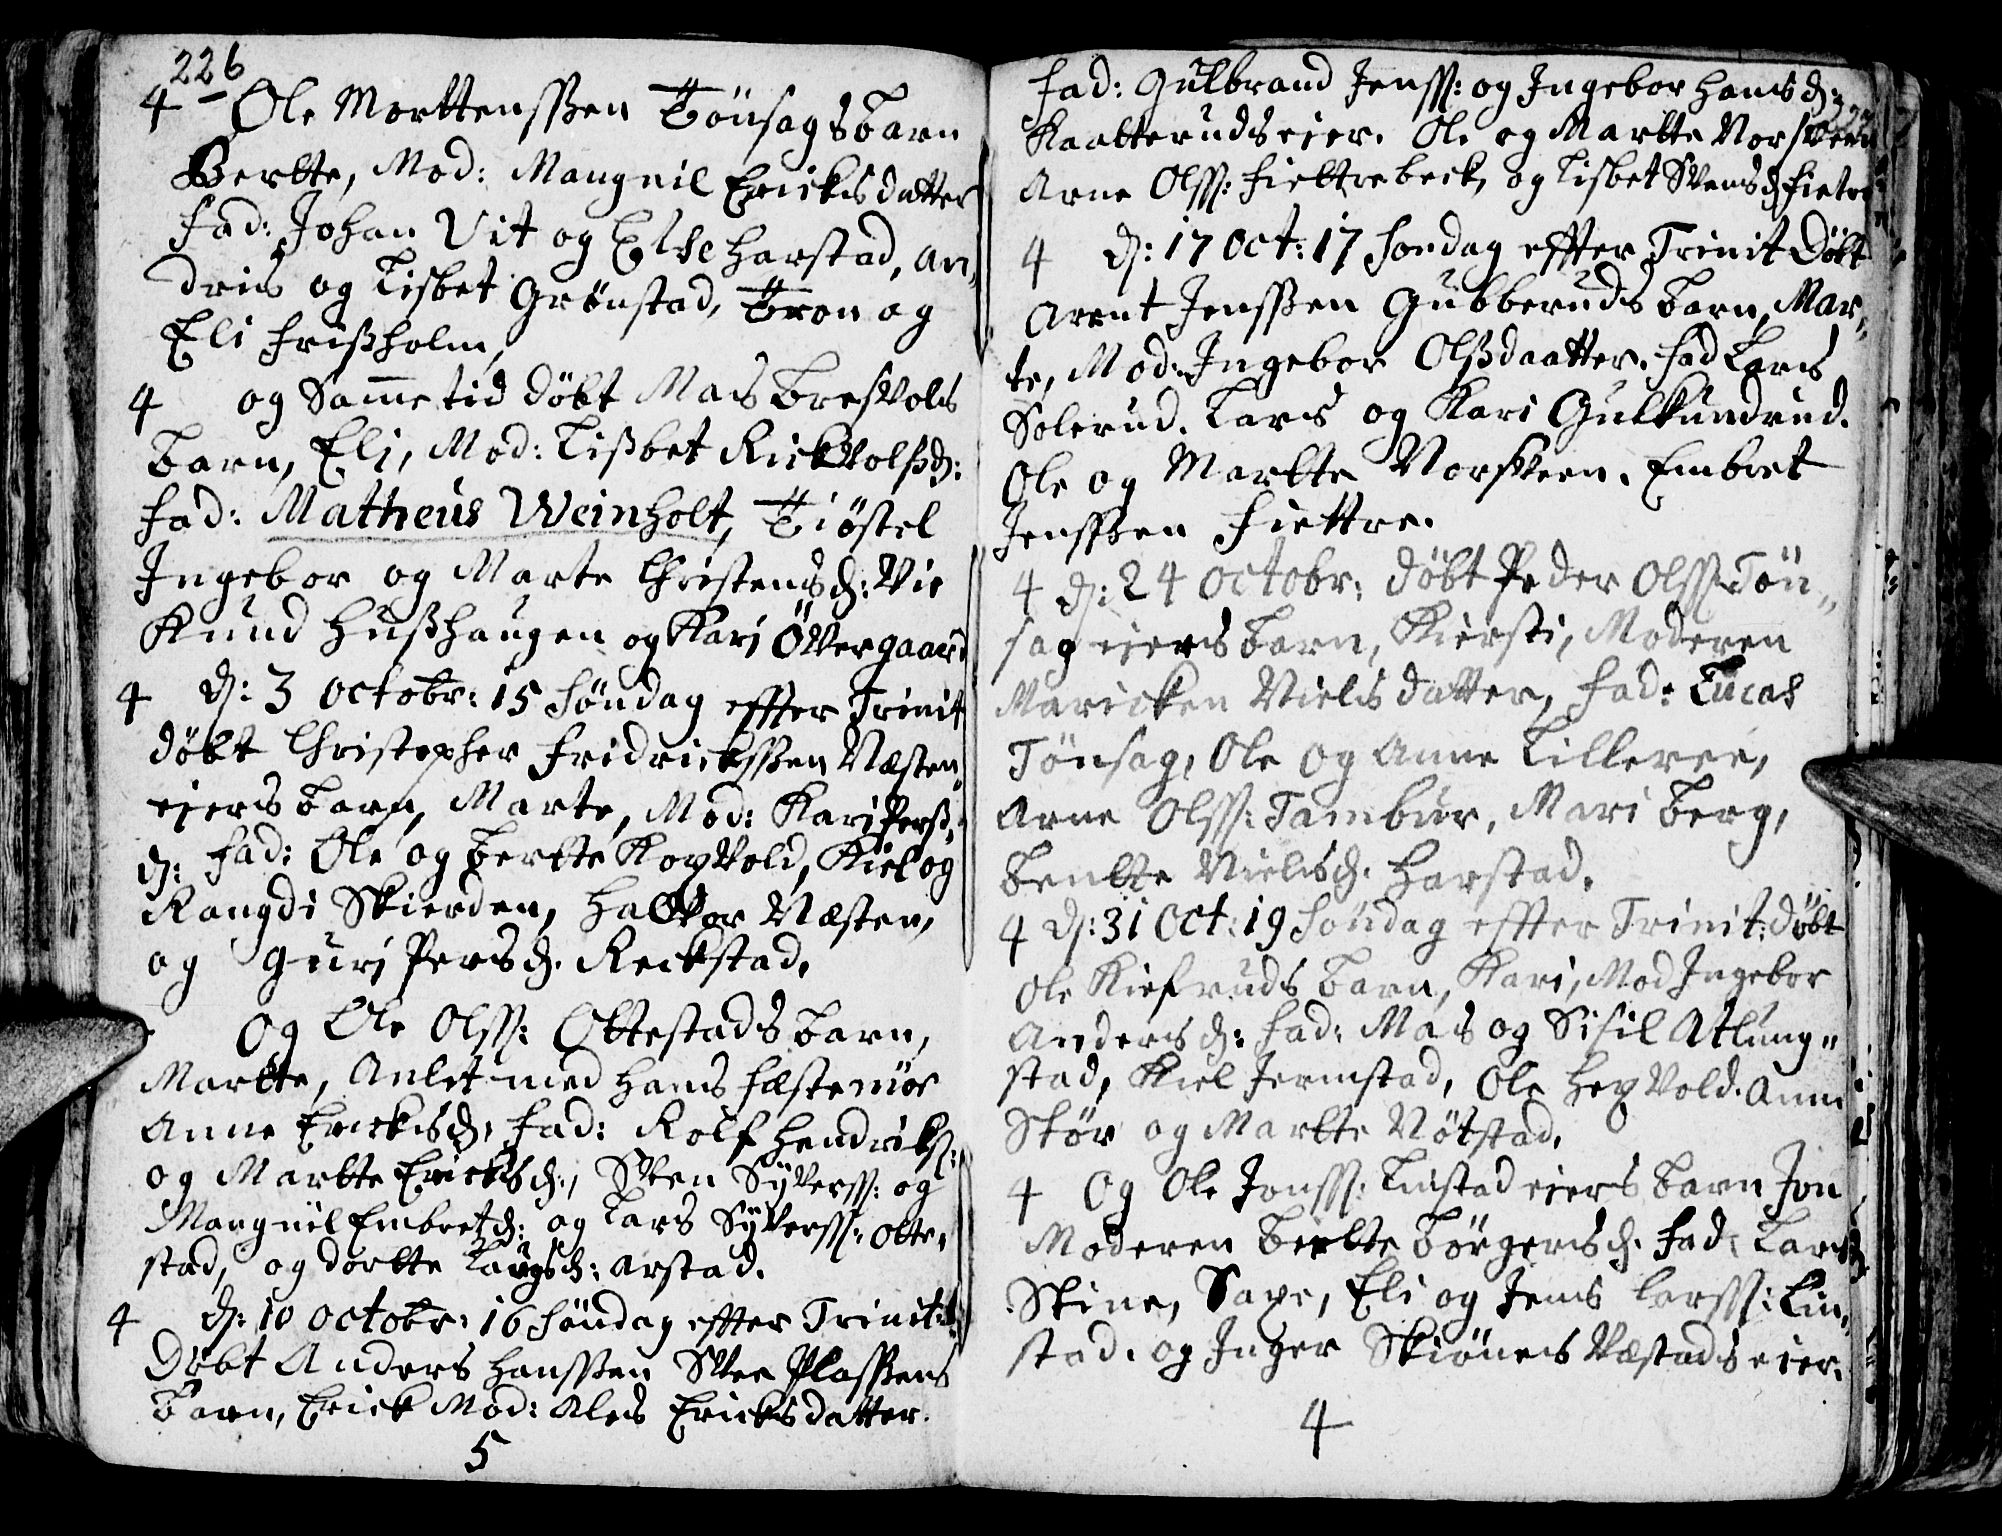 226
4 Ole Morttensßen Tönsags barn
Bertte, Mod: Mangnil Ericksdatter
fad: Johan Vit og Else Harstad, an„
dris og Lisbet Grönstad, Tron og
Eli frißholm,
4 og Samme tid döbt Mas Bresvols
barn, Eli, Mod: Lißbet Rickvolsd:
fad: Matheus Weinholt, Tiöstel
Ingebor og Marte Christensd: Vie
Knud Hußhaugen og Kari Övergaard
4 d: 3 octobr: 15 Söndag effter Trinit
döbt Christopher Fridricksßen Næsten
eiers barn, Marte, Mod: Kari Perß„
d: fad: Ole og Bertte Kopvold, Kiel og
Rangdi Skierden, Halvor Næsten,
og Guri Persd. Reckstad.
Og Ole Olss: Ottestads barn,
Martte, Anlet med hans fæstemöe
Anne Ericksd, fad: Rolf Hendricks:
og Martte Ericksd:, Sven Syverss: og
Mangnil Embretzd: og Lars Syverss: Otte„
stad, og dortte Laugsd: Arstad.
4 d: 10 octobr: 16 Söndag effter Trinit:
Döbt Anders Hansßen Svee Plassens
barn, Erick Mod: Ales Ericksdatter.
5
fad: Gulbrand Jenss: og Ingebor Hansd:
Kaatterudseier. Ole og Martte Norsveen
Arne Olss: fiettrebeck, og Lisbet Svensd fietre
4 d: 17 Oct: 17 Söndag effter Trinit Döbt
Arent Jensßen Gubberuds barn, Mar„
te, Mod: Ingebor Olßdaatter. fad Lars
Solerud. Lars og Kari Gulkundrud.
Ole og Martte Norsveen. Embret
Jensßen fiettre.
4 d: 24 octobr: döbt Peder Olss Tön„
sag eiers barn, Kiersti, Moderen
Maricken Nielsdatter, fad: Lucas
Tönsag, Ole og Anne Lilleree,
Arne Olss: Tambur, Mari Berg,
Bentte Nielsd. Harstad.
4 d: 31 Oct: 19 Söndag effter Trinit: döbt
Ole Kiefruds barn, Kari, Mod Ingebor
Andersd: fad: Mas og Sisil Atlung„
stad, Kiel Jermstad, Ole Hepvold. Anne
Stör og Martte Nötstad.
4 Og Ole Jonss: Linstad eiers barn Jon
Moderen Bertte Börgersd. fad: Lars
Skine, Saxe, Eli og Jens Larss: Lin„
stad. og Inger Skiönes Væstadseier.
4